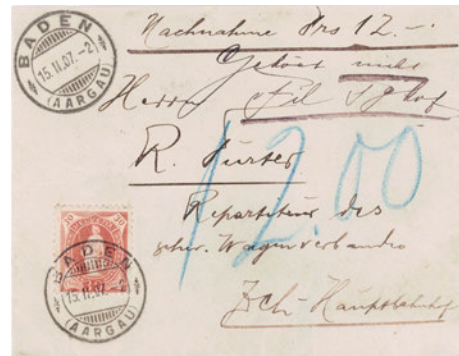 BADEN
15.II.07.-2
(AARGAU)
Nachnahme Frs 12.-
Gehört nicht
Herrn
R. Furter
12.00
Repartiteur des
schw. Wagenverbandes
Zch- Hauptbahnhof
30 30
BADEN
15.II.07.
(AARGAU)